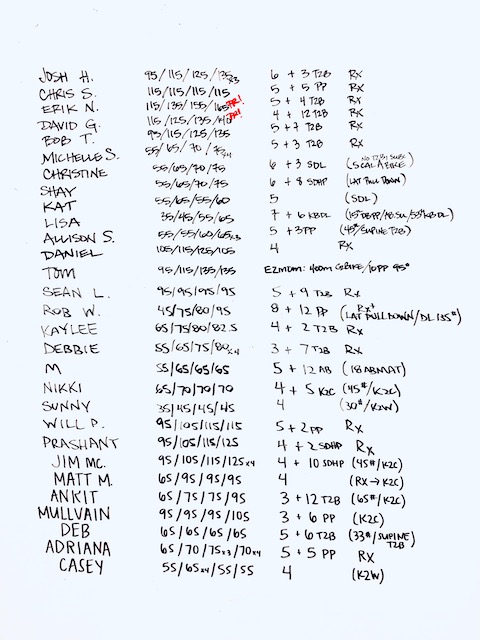 JOSH H. 95/115/125/135x3 6 + 3 T2B Rx
CHRIS S. 115/115/115/115 5 + 5 PP Rx
ERIK N. 115/135/155/165 PR! 5 + 4 T2B Rx
DAVID G. 115/125/135/140 PR! 4 + 12 T2B Rx
BOB T. 95/115/125/135 5 + 7 T2B Rx
MICHELLE S. 55/65/70/75x4 5 + 3 T2B Rx
CHRISTINE 55/65/70/75 6 + 3 SDL
SHAY 55/65/70/75 6 + 8 SDHP (LAT PULL DOWN)
KAT 55/65/55/60 5 (SDL)
LISA 35/45/55/65 7 + 6 KBDL
ALLISON S. 55/55/60/65x3 5 + 3PP (45#/SUPINE T2B)
DANIEL 105/115/125/105 4 Rx
TOM 95/115/135/135 E2MOM: 400m 10PP 95#
SEAN L. 95/95/95/95 5 + 9 T2B Rx
ROB W. 45/75/80/95 8 + 12 PP Rx+ (LAT PULL DOWN/DL 135#)
KAYLEE 65/75/80/82.5 4 + 2 T2B Rx
DEBBIE 55/65/75/80x4 3 + 7 T2B Rx
M 55/65/65/65 5 + 12 AB (18 ABMAT)
NIKKI 65/70/70/70 4 + 5 K2C (45#/K2C)
SUNNY 35/45/45/45 4 (30#/K2W)
WILL P. 95/105/115/115 5 + 2 PP Rx
PRASHANT 95/105/115/125 4 + 2 SDHP Rx
JIM MC. 95/105/115/125x4 4 + 10 SDHP (45#/K2C)
MATT M. 65/95/95/95 4 (Rx → K2C)
ANKIT 65/75/75/95 3 + 12 T2B (65#/K2C)
MULLVAIN 95/95/95/105 3 + 6 PP (K2C)
DEB 65/65/65/65 5 + 6 T2B (33#/SUPINE T2B)
ADRIANA 65/70/75x3/70x4 5 + 5 PP Rx
CASEY 55/65x4/55/55 4 (K2W)